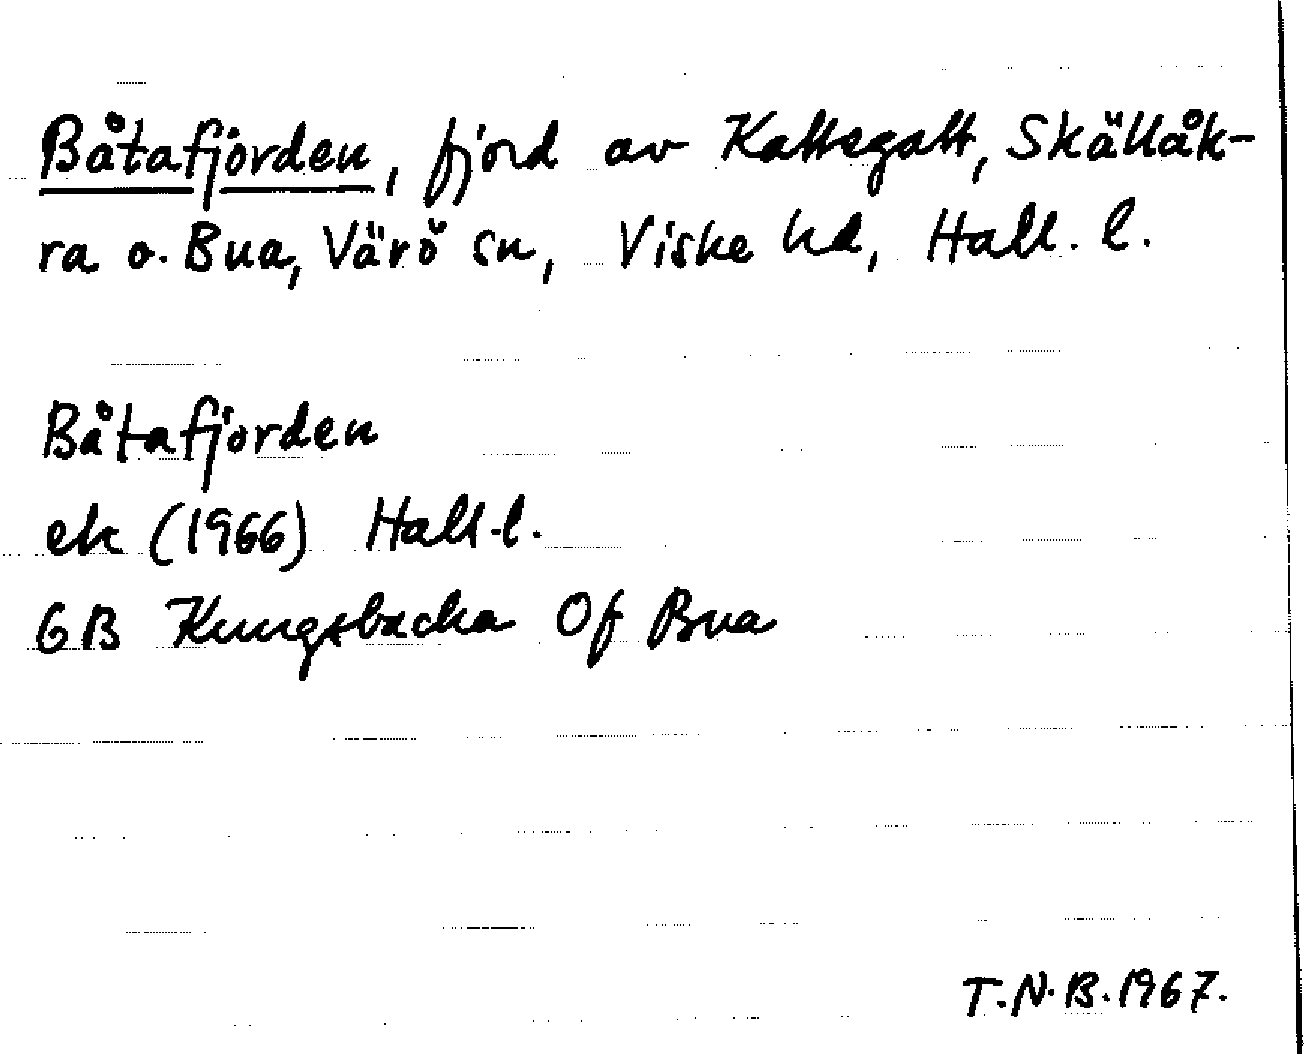 Båtafjorden, fjord av Kattegatt, Skällåk-
ra o. Bua, Värö sn, Viske hd, Hall. l.
Båtafjorden
ek (1966) Hall. l.
6B Kungsbacka Of Bua
T.N.B. 1967.